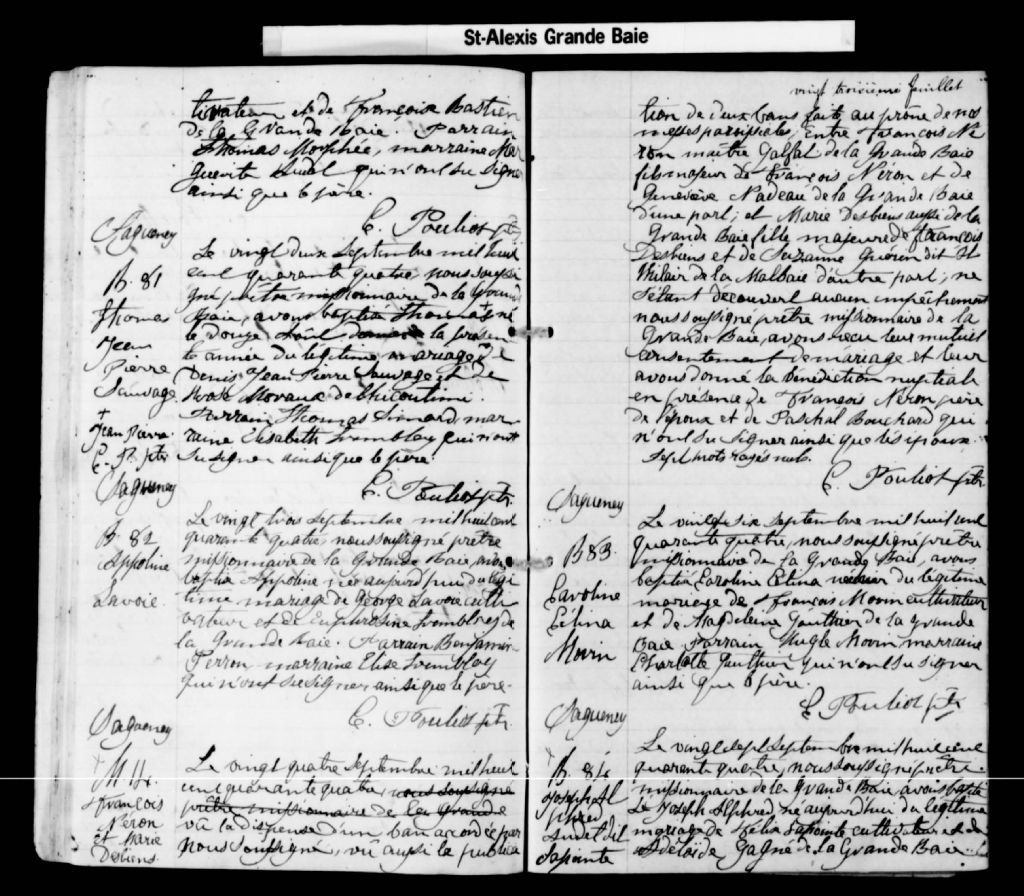 St-Alexis Grande Baie
tivateur et de Françoise Bastien
de la Grande Baie. Parrain
Thomas Morphée, marraine Mar
guerite qui n'ont su signer
ainsi que le père.
C. Pouliot ptr
Saguenay
B. 81
Thomas
Jean
Pierre
Sauvage
†
Jean Pierre
C. P. ptr
Le vingt deux Septembre mil huit
cent quarante quatre nous soussi
gné prêtre missionnaire de la Grande
Baie, avons baptisé Thomas né
le douze la présen
te année du légitime mariage de
Denis Jean Pierre Sauvage et de
Rose Moraux de Chicoutimi.
Parrain Thomas Simard mar
raine Elisabeth Tremblay qui n'ont
su signer ainsi que le père.
C. Pouliot ptr.
Saguenay
B. 82
Appoline
Lavoie.
Le vingt trois Septembre mil huit cent
quarante quatre nous soussigné prêtre
missionnaire de la Grande Baie, avons
baptisé Appoline née aujourd'hui du légi
time mariage de George Lavoie culti
vateur et de Euphrosine Tremblay de
la Grande Baie. Parrain Benjamin
Perron marraine Elise Tremblay
qui n'ont su signer ainsi que le père.
C. Pouliot ptr.
Saguenay
M 14.
François
Néron
et Marie
Desbiens.
Le vingt quatre Septembre mil huit
cent quarante quatre nous soussigné
prêtre missionnaire de la Grande
vû la dispense d'un ban accordée par
nous soussigné, vû aussi la publica
vingt troisième feuillet
tion de deux bans faite au prône de nos
messes paroissiales, entre François Né
ron maître de la Grande Baie
fils majeur de François Néron et de
Geneviève Nadeau de la Grande Baie
d'une part; et Marie Desbiens aussi de la
Grande Baie fille majeure de François
Desbiens et de Suzanne Guérin dit St
Hilair de la Malbaie d'autre part; ne
s'étant découvert aucun empêchement
nous soussigné prêtre missionnaire de la
Grande Baie, avons reçu leur mutuel
consentement de mariage et leur
avons donné la Bénédiction nuptiale
en présence de François Néron père
de l'époux et de Paschal Bouchard qui
n'ont su signer ainsi que les époux.
Sept mots rayés nuls.
C. Pouliot ptr.
Saguenay
B 83.
Caroline
Célina
Morin
Le vingt six Septembre mil huit cent
quarante quatre, nous soussigné prêtre
missionnaire de la Grande Baie, avons
baptisé Caroline Célina du légitime
mariage de François Morin cultivateur
et de Magdeleine Gauthier de la Grande
Baie Parrain Hugle Morin marraine
Charlotte Gauthier qui n'ont su signer
ainsi que le père.
C. Pouliot ptr
Saguenay
B. 84
Joseph Al
phred
dit
Lapointe
Le vingt sept Septembre mil huit cent
quarante quatre, nous soussigné prêtre
missionnaire de la Grande Baie, avons baptisé
Joseph Alphred né aujourd'hui du légitime
mariage de Félix Lapointe cultivateur et de
Adelaïde Gagné de la Grande Baie.